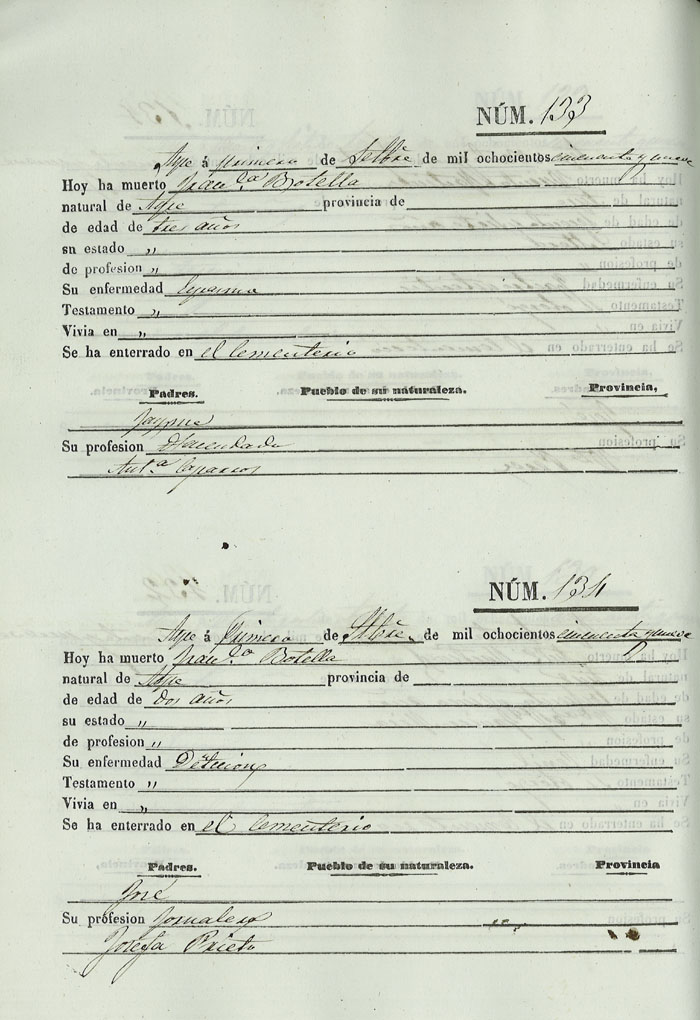 NÚM. 133
Aspe á primero de Setbre de mil ochocientos cincuenta y nueve
Hoy ha muerto Franca Botella
natural de Aspe provincia de
de edad de tres años
su estado "
de profesion "
Su enfermedad Espasmo
Testamento "
Vivia en "
Se ha enterrado en el Cementerio
Padres. Pueblo de su naturaleza. Provincia,
Jayme
Su profesion Hacendado
Anta Caparros
NÚM. 134
Aspe á Primero de Stbre de mil ochocientos cincuenta y nueve
Hoy ha muerto Franca Botella
natural de Aspe provincia de
de edad de dos años
su estado "
de profesion "
Su enfermedad Denticion
Testamento "
Vivia en "
Se ha enterrado en el Cementerio
Padres. Pueblo de su naturaleza. Provincia
José
Su profesion Jornalero
Josefa Prieto